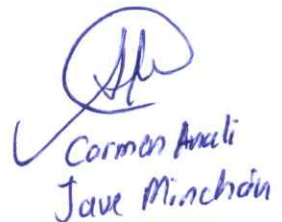 Carmen Anali
Jave Minchán